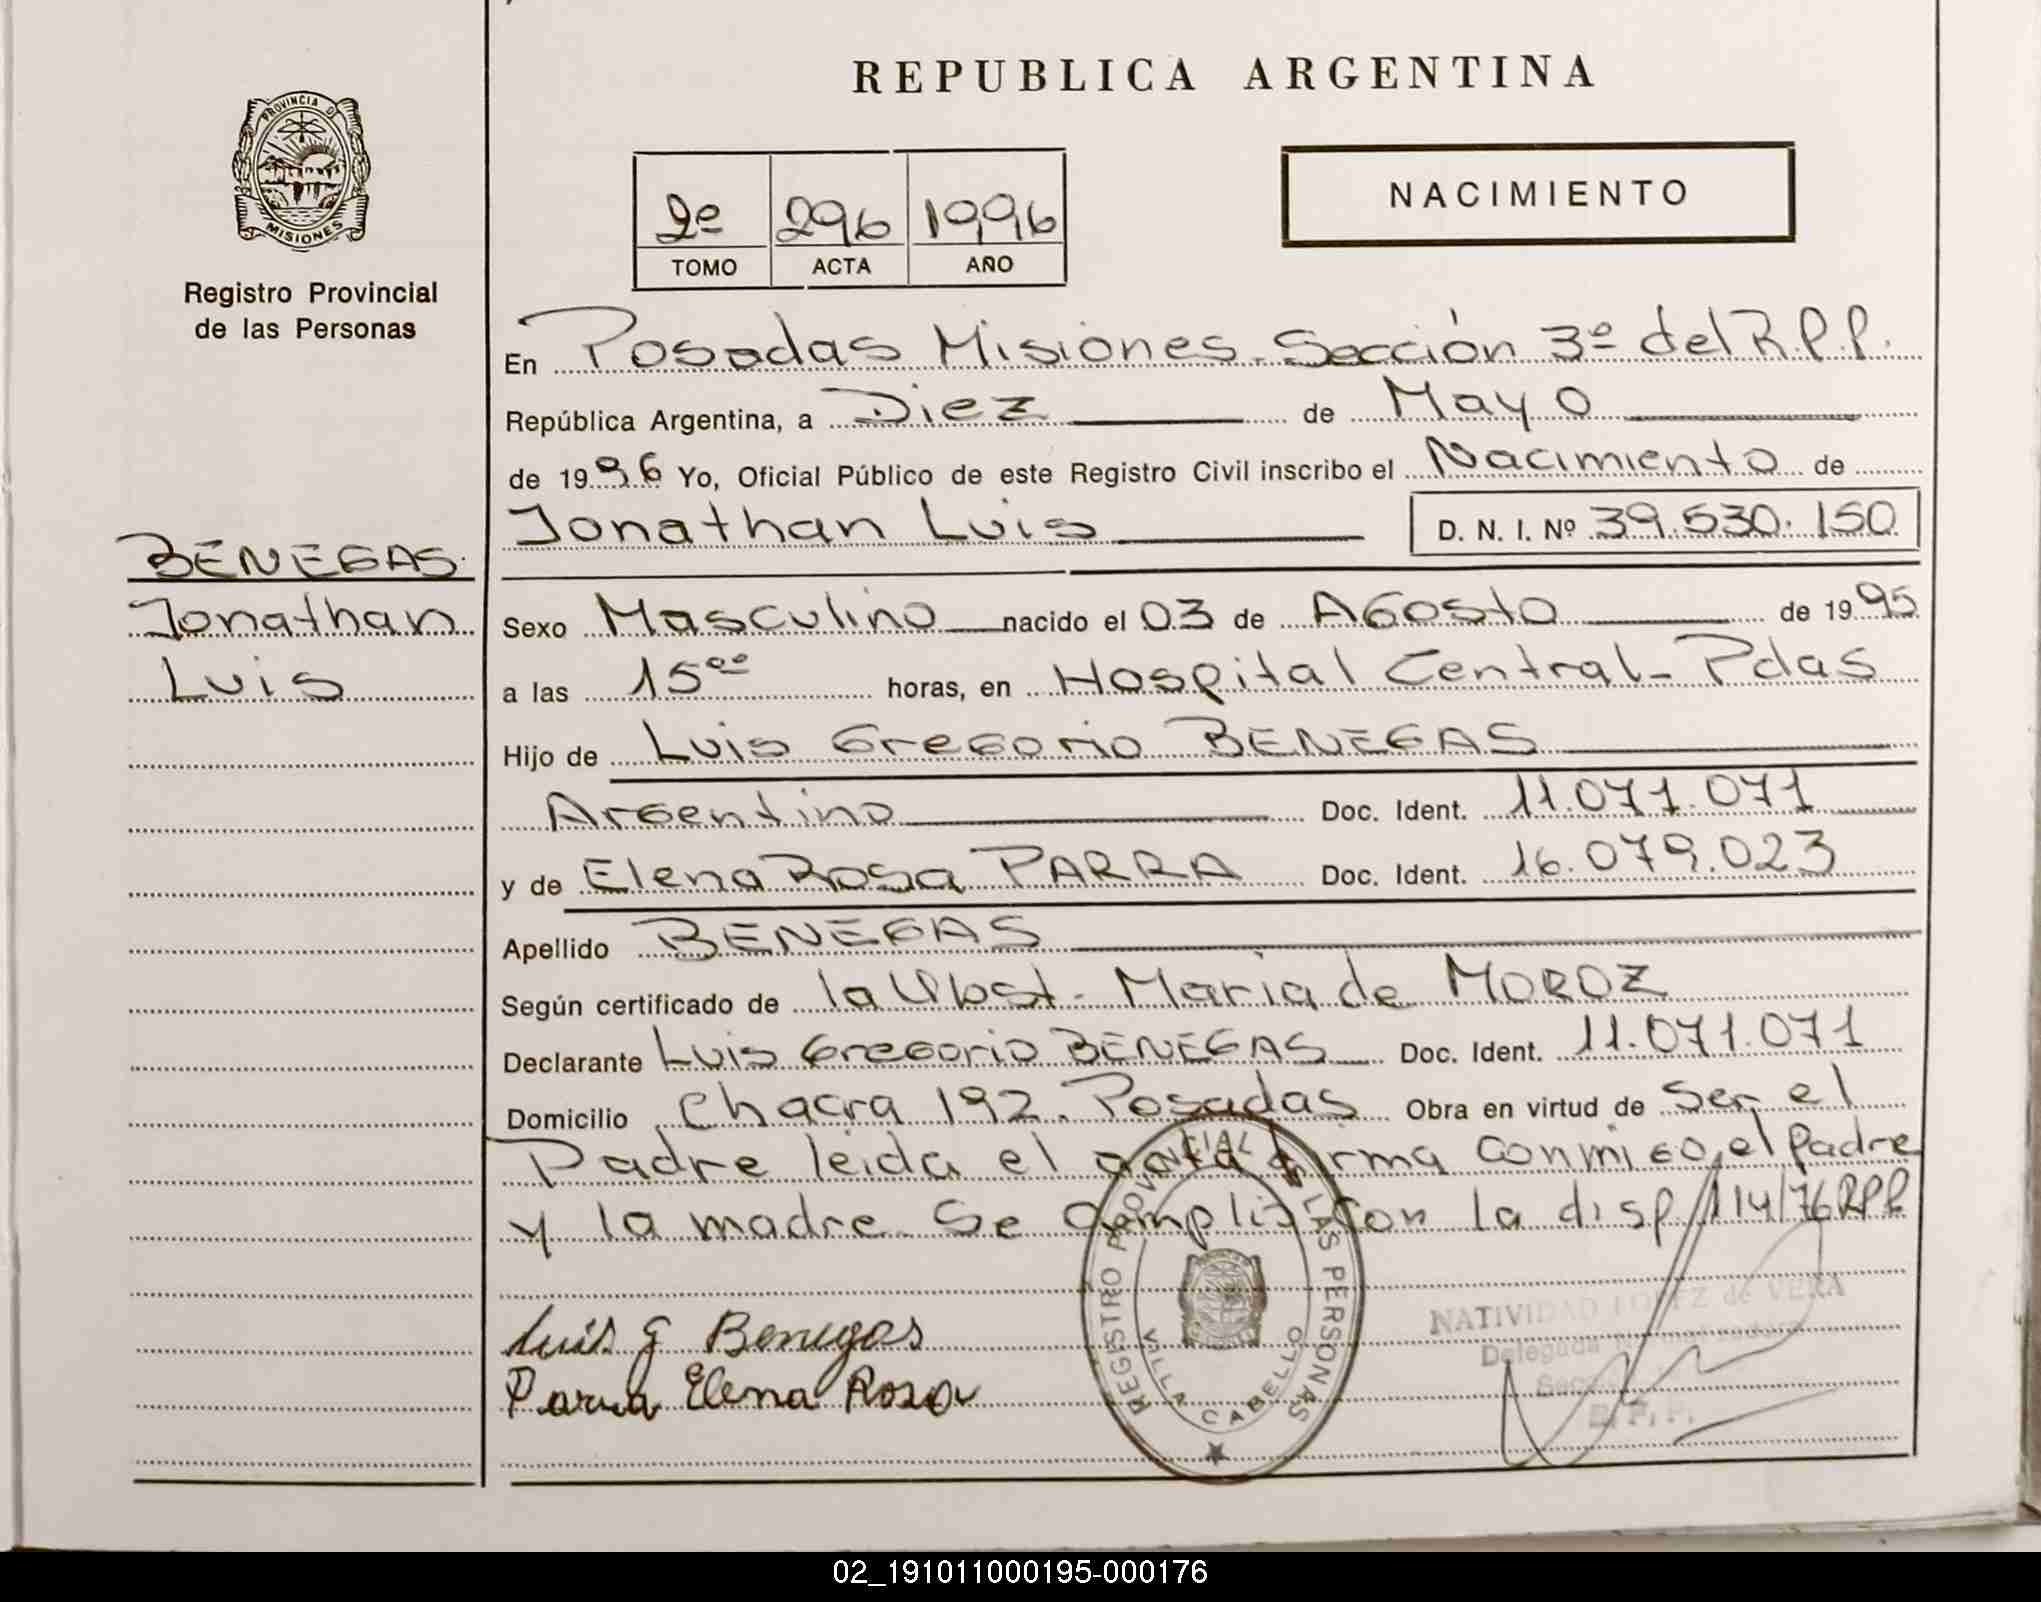 REPUBLICA ARGENTINA
PROVINCIA DE
MISIONES
Registro Provincial
de las Personas
NACIMIENTO
2º 296 1996
TOMO ACTA AÑO
En Posadas Misiones. Sección 3º del R.P.P.
República Argentina, a Diez de Mayo
de 1996 Yo, Oficial Público de este Registro Civil inscribo el Nacimiento de
Jonathan Luis D. N. I. Nº 39.530.150
BENEGAS.
Jonathan
Luis
Sexo Masculino nacido el 03 de AGosto de 1995
a las 15⁰⁰ horas, en Hospital Central - Pdas
Hijo de Luis Gregorio BENEGAS
Argentino Doc. Ident. 11.071.071
y de Elena Rosa PARRA Doc. Ident. 16.079.023
Apellido BENEGAS
Según certificado de la Obst. Maria de MOROZ
Declarante Luis Gregorio BENEGAS Doc. Ident. 11.071.071
Domicilio Chacra 192. Posadas Obra en virtud de Ser el
Padre leida el acta firma conmigo, el padre
y la madre. Se cumplió con la disp/114/76 RPP
Luis G Benegas
Parra Elena Rosa
REGISTRO PROVINCIAL DE LAS PERSONAS
VILLA CABELLO
NATIVIDAD LOPEZ de VERA
Delegada Normalizadora
R. P. P.
02_191011000195-000176